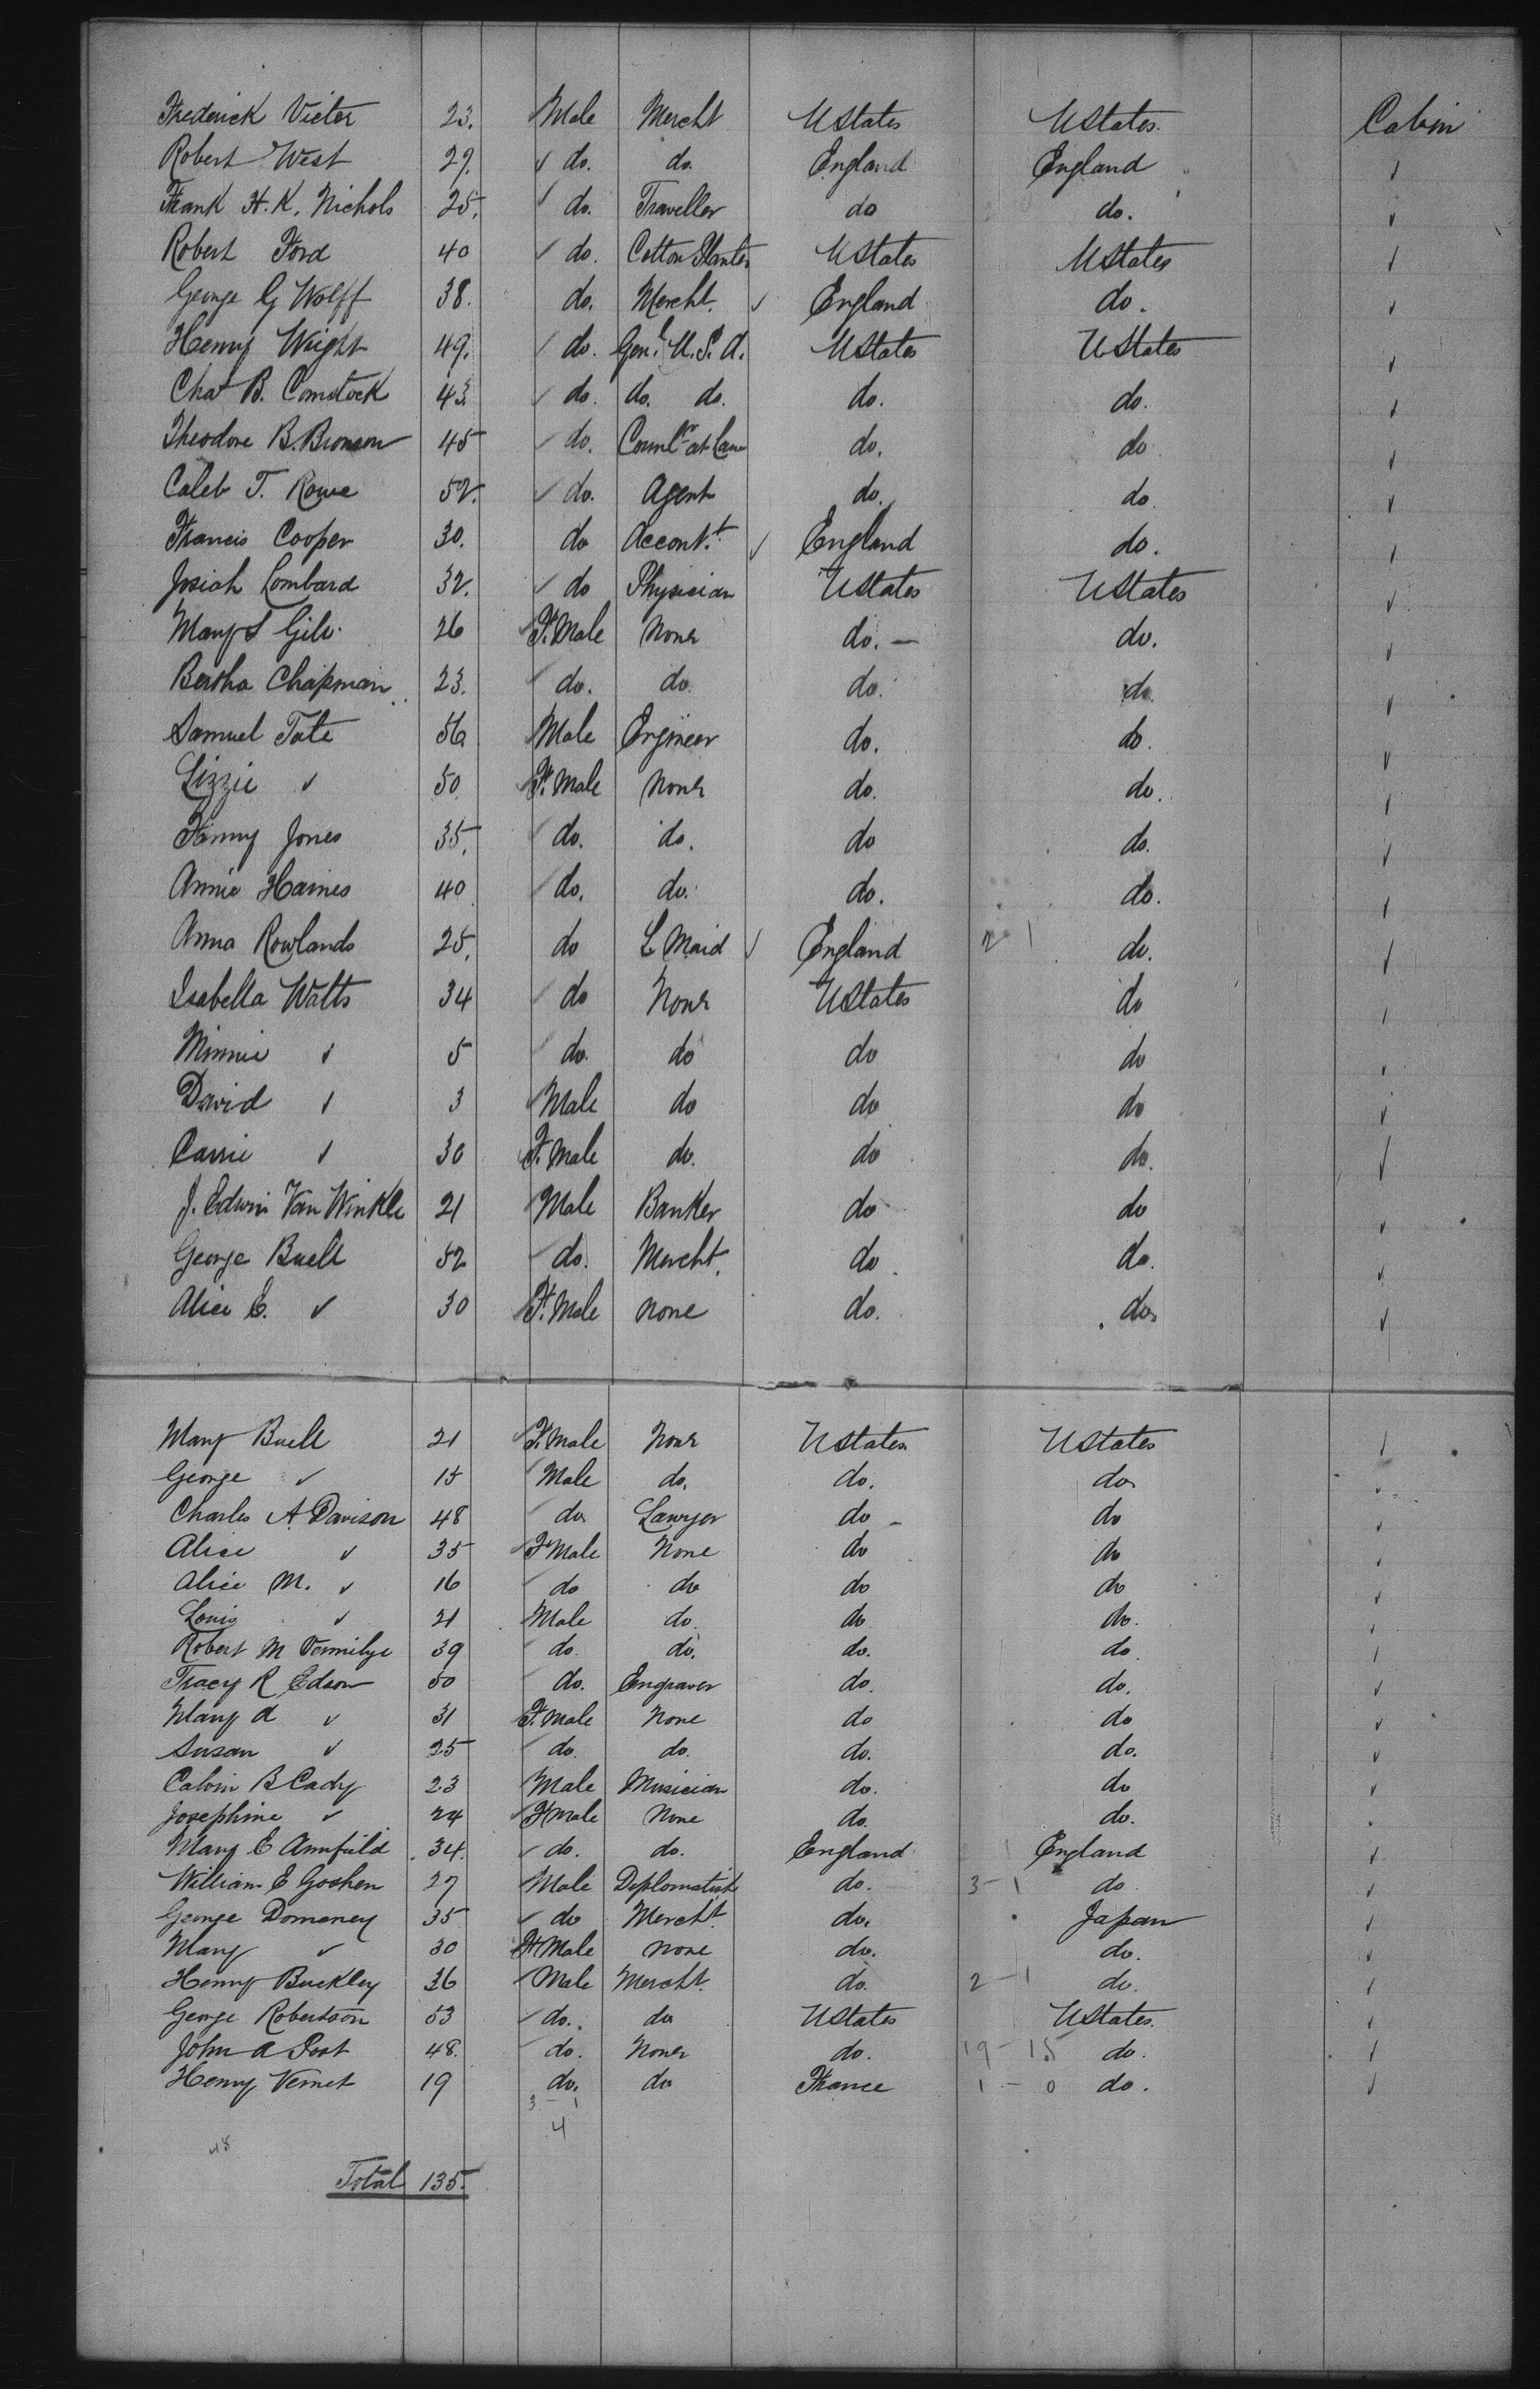 Frederick Victor 23. Male Mercht UStates UStates. Cabin
Robert West 29. ✓ do. do. England England ✓
Frank H. K. Nichols 25. ✓ do. Traveller do do. ✓
Robert Ford 40 ✓ do. Cotton Planter UStates UStates ✓
George G Wolff 38. do. Mercht. ✓ England do. ✓
Henry Wright 49. ✓ do. Genl. U.S.A. UStates UStates ✓
Chas B. Comstock 43. ✓ do. do. do. do. do. ✓
Theodore B. Bronson 45 ✓ do. Counlr at Law do. do ✓
Caleb T. Rowe 52. ✓ do. Agent do. do. ✓
Francis Cooper 30. do Accont.t ✓ England do. ✓
Josiah Lombard 32. ✓ do Physician UStates UStates ✓
Mary S 26 ✓ F. Male None do. — do. ✓
Bertha Chapman 23. ✓ do. do. do. do. ✓
Samuel Tate 56 Male Engineer do. do. ✓
Lizzie ✓ 50. ✓ F. Male None do. do. ✓
Fanny Jones 35. ✓ do. do. do do. ✓
Annie Haines 40 ✓ do. do. do. do. ✓
Anna Rowlands 25. do L Maid ✓ England 2 1 do. ✓
Isabella Watts 34 ✓ do None UStates do ✓
Minnie ✓ 5 ✓ do. do do do ✓
David ✓ 3 ✓ Male do do do ✓
Carrie ✓ 30 ✓ F. Male do. do do. ✓
J. Edwin Van Winkle 21 ✓ Male Banker do do ✓
George Buell 52 ✓ do. Mercht. do do. ✓
Alice E. ✓ 30 ✓ F. Male None do. do. ✓
Mary Buell 21 ✓ F. Male None UStates UStates ✓
George ✓ 15 ✓ Male do. do. do. ✓
Charles A. Davison 48 ✓ do. Lawyer do - do ✓
Alice ✓ 35 ✓ F Male None do do ✓
Alice M. ✓ 16 ✓ do do do do ✓
Louis ✓ 21 ✓ Male do. do do. ✓
Robert M Vermilye 39 ✓ do. do. do. do. ✓
Tracy R Edson 50 ✓ do. Engraver do. do. ✓
Mary A ✓ 31 F. Male None do do ✓
Susan ✓ 25 ✓ do. do. do. do. ✓
Calvin B Cady 23 Male Musician do. do ✓
Josephine ✓ 24 ✓ F Male None do. do. ✓
Mary E Armfield 34. ✓ do. do. England England ✓
William E Goshen 27 ✓ Male Diplomatist do. 3 - 1 do ✓
George Domoney 35 ✓ do Mercht. do. Japan ✓
Mary ✓ 30 F Male None do. do. ✓
Henry Buckley 36 ✓ Male Mercht. do. 2 - 1 do. ✓
George Robertson 53 ✓ do. do UStates UStates. ✓
John A Post 48. ✓ do. None do. 19 - 15 do. ✓
Henry Vernet 19 do. do France 1 - 0 do. ✓
3 - 1
4
Total 135.